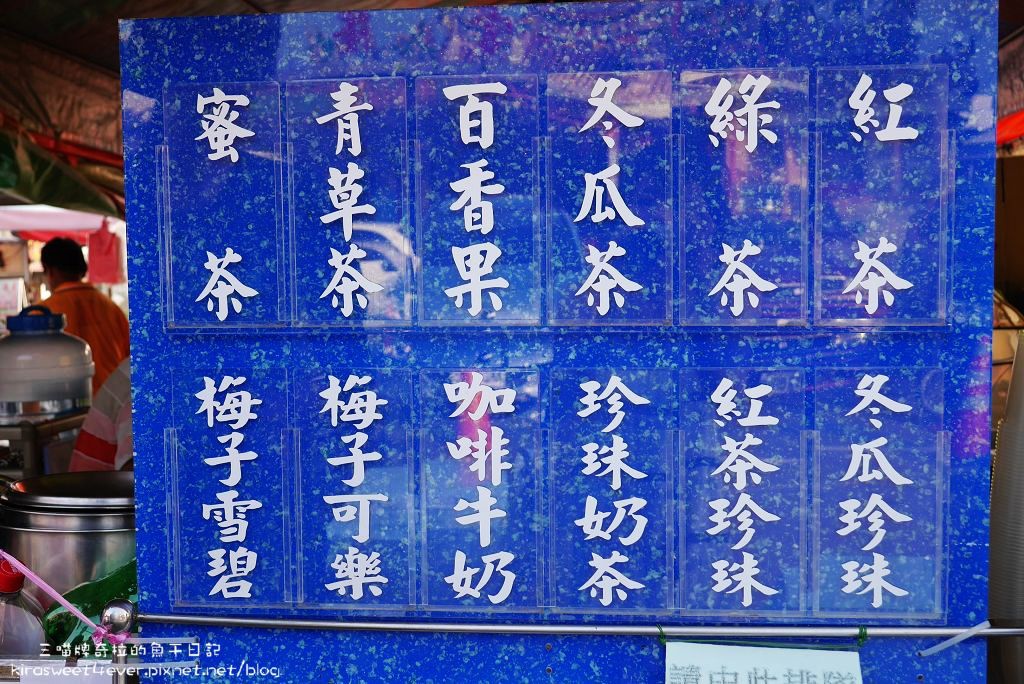 紅茶
綠茶
冬瓜茶
百香果
青草茶
蜜茶
冬瓜珍珠
紅茶珍珠
珍珠奶茶
咖啡牛奶
梅子可樂
梅子雪碧
請由此排隊
三喵牌奇拉的魚干日記
kirasweet4ever.pixnet.net/blog